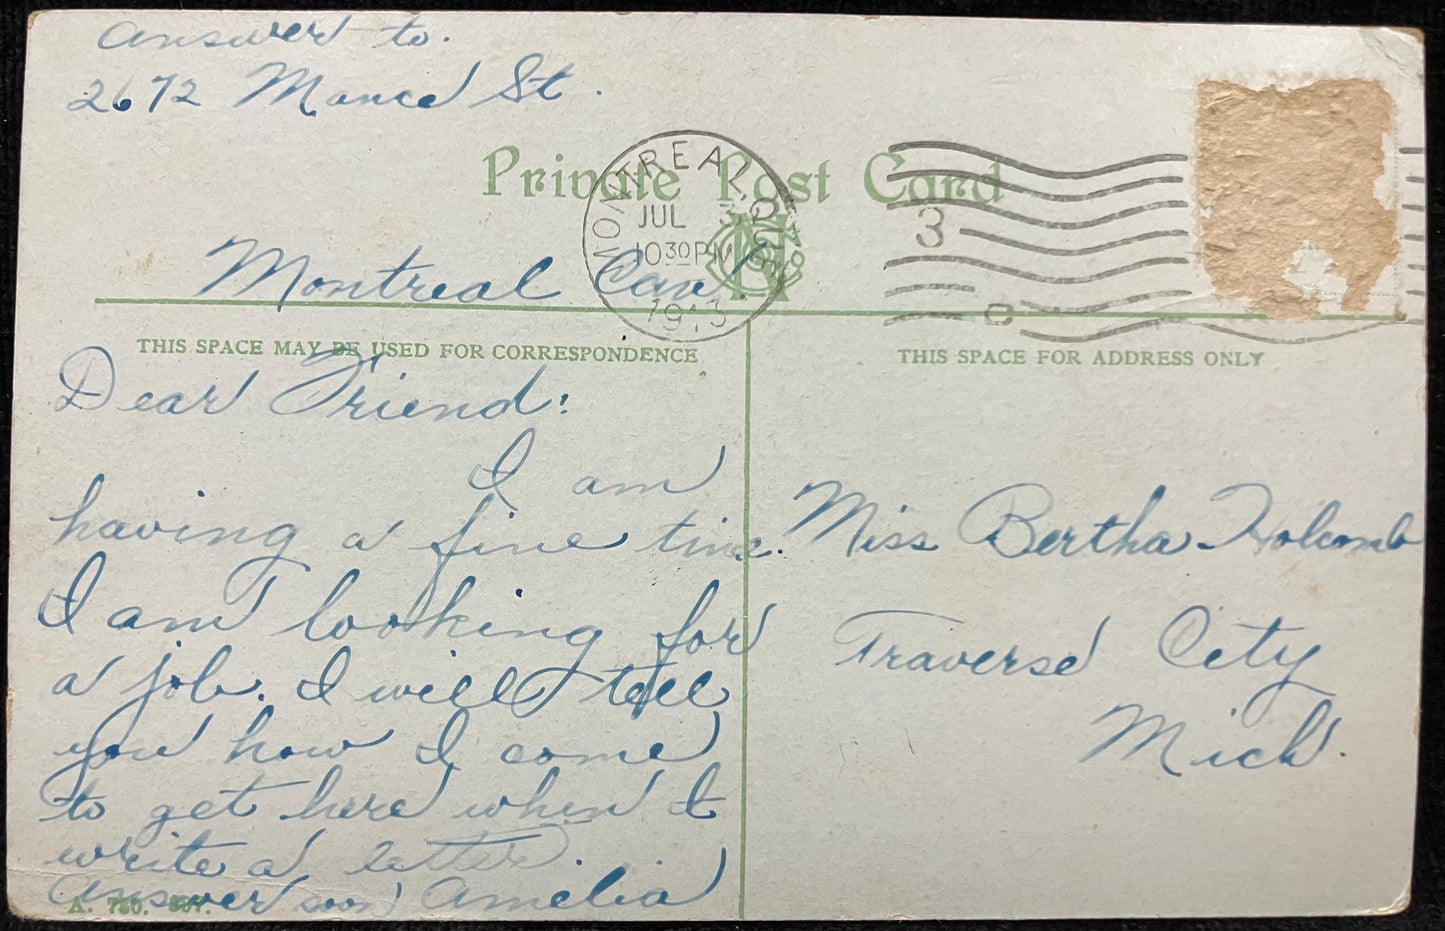 Answer to.
2672 Mance St.
Private Post Card
MONTREAL, QUE.
JUL 3
10 30 PM
1913
3
C
Montreal Can.
THIS SPACE MAY BE USED FOR CORRESPONDENCE
THIS SPACE FOR ADDRESS ONLY
Dear Friend:
I am
having a fine time.
I am looking for
a job. I will tell
you how I come
to get here when I
write a letter.
Answer soon Amelia
Miss Bertha Holcomb
Traverse City
Mich.
A.